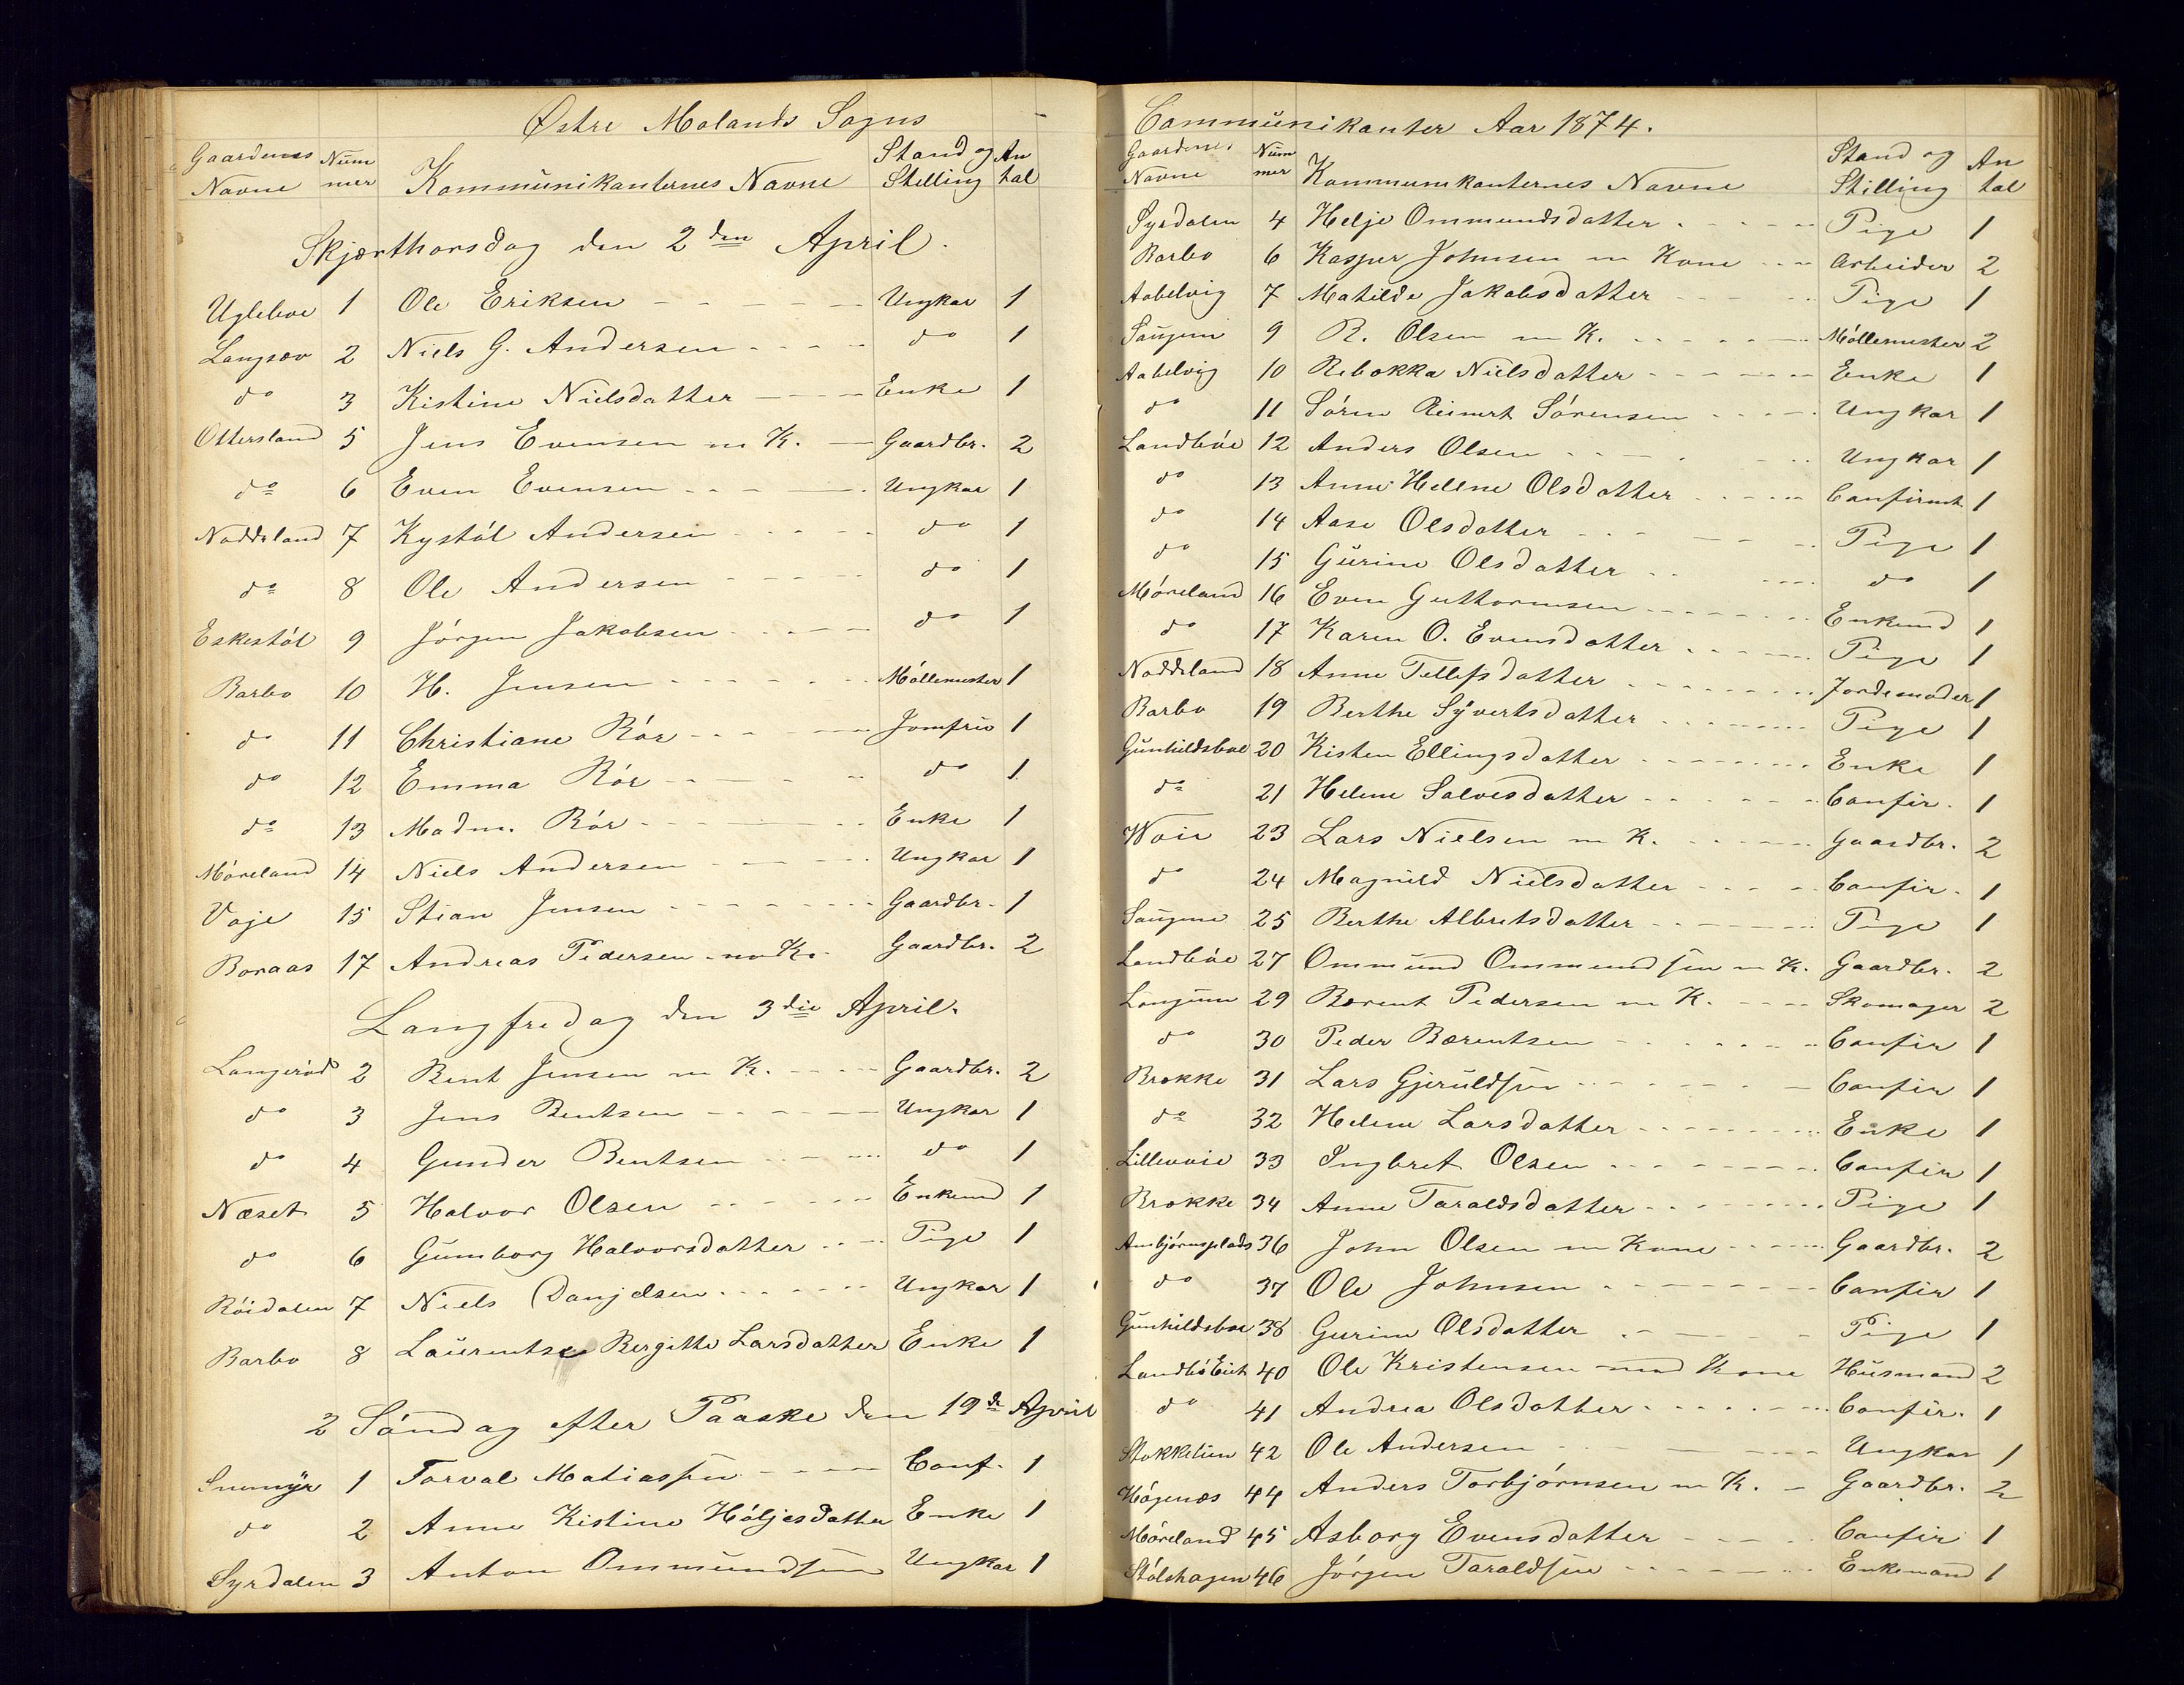 Østre Molands Sogns
Gaardenes Navne Num mer Kommunikanternes Navne Stand og Stilling An tal
Skjærthorsdag den 2den April.
Ugleboe 1 Ole Eriksen Ungkar 1
Langsæv 2 Niels G. Andersen do 1
do 3 Kistine Nielsdatter Enke 1
Ottersland 5 Jens Evensen m K. Gaardbr. 2
do 6 Even Evensen Ungkar 1
Noddeland 7 Kystól Andersen do 1
do 8 Ole Andersen do 1
Eskestól 9 Jórgen Jakobsen do 1
Barbo 10 H. Jensen Móllemester 1
do 11 Christiane Rór Jomfrio 1
do 12 Emma Rór do 1
do 13 Madm. Rór Enke 1
Móreland 14 Niels Andersen Ungkar 1
Voje 15 Stian Jensen Gaardbr. 1
Boraas 17 Andreas Pedersen m K. Gaardbr. 2
Langfredag den 3die April.
Langeród 2 Bent Jensen m K. Gaardbr. 2
do 3 Jens Bentsen Ungkar 1
do 4 Gunder Bentsen do 1
Næset 5 Halvor Olsen Enkemd 1
do 6 Gumborg Halvorsdatter Pige 1
Róidalen 7 Niels Danjelsen Ungkar 1
Barbo 8 Laurentse Bergitte Larsdatter Enke 1
2 Sóndag efter Paaske den 19de April
1 Torval Matiassen Conf. 1
do 2 Anne Kistine Hóljesdatter Enke 1
Syrdalen 3 Anton Ommundsen Ungkar 1
Communikanter Aar 1874.
Gaardenes Navne Num mer Kommunikanternes Navne Stand og Stilling An tal
Syrdalen 4 Helje Ommundsdatter Pige 1
Barbo 6 Kasper Johnsen m Kone Arbeider 2
Aabelvig 7 Matilde Jakobsdatter Pige 1
Saugem 9 R. Olsen m K. Móllemester 2
Aabelvig 10 Rebokka Nielsdatter Enke 1
do 11 Sóren Reinert Sórensen Ungkar 1
Landbóe 12 Anders Olsen Ungkar 1
do 13 Anne Hellene Olsdatter Confirmt 1
do 14 Aase Olsdatter Pige 1
do 15 Gurine Olsdatter do 1
Móreland 16 Even Guttormsen Enkemd 1
do 17 Karen O. Evensdatter Pige 1
Noddeland 18 Anne Tellefsdatter Jordemoder 1
Barbo 19 Berthe Syvertsdatter Pige 1
Gunhildsboe 20 Kisten Ellingsdatter Enke 1
do 21 Helene Salvesdatter Confir. 1
Woie 23 Lars Nielsen m K. Gaardbr. 2
do 24 Magnild Nielsdatter Confir. 1
Saugene 25 Berthe Albretsdatter Pige 1
Landbóe 27 Ommund Ommundsen m K. Gaardbr. 2
Langum 29 Bærent Pedersen m K. Skomager 2
do 30 Peder Bærentsen Confir 1
Brekke 31 Lars Gjeruldsen Confir 1
do 32 Helene Larsdatter Enke 1
Lillevoie 33 Ingbret Olsen Confir 1
Brekke 34 Anne Taraldsdatter Pige 1
Ambjórnsplads 36 John Olsen m Kone Gaardbr. 2
do 37 Ole Johnsen Confir 1
Gunhildsboe 38 Gurine Olsdatter Pige 1
40 Ole Kristensen med Kone Husmand 2
do 41 Andrea Olsdatter Confir. 1
Stokkelien 42 Ole Andersen Ungkar 1
Hógenæs 44 Anders Torbjórnsen m K. Gaardbr. 2
Móreland 45 Asborg Evensdatter Confir 1
Stólshagen 46 Jórgen Taraldsen Enkemand 1